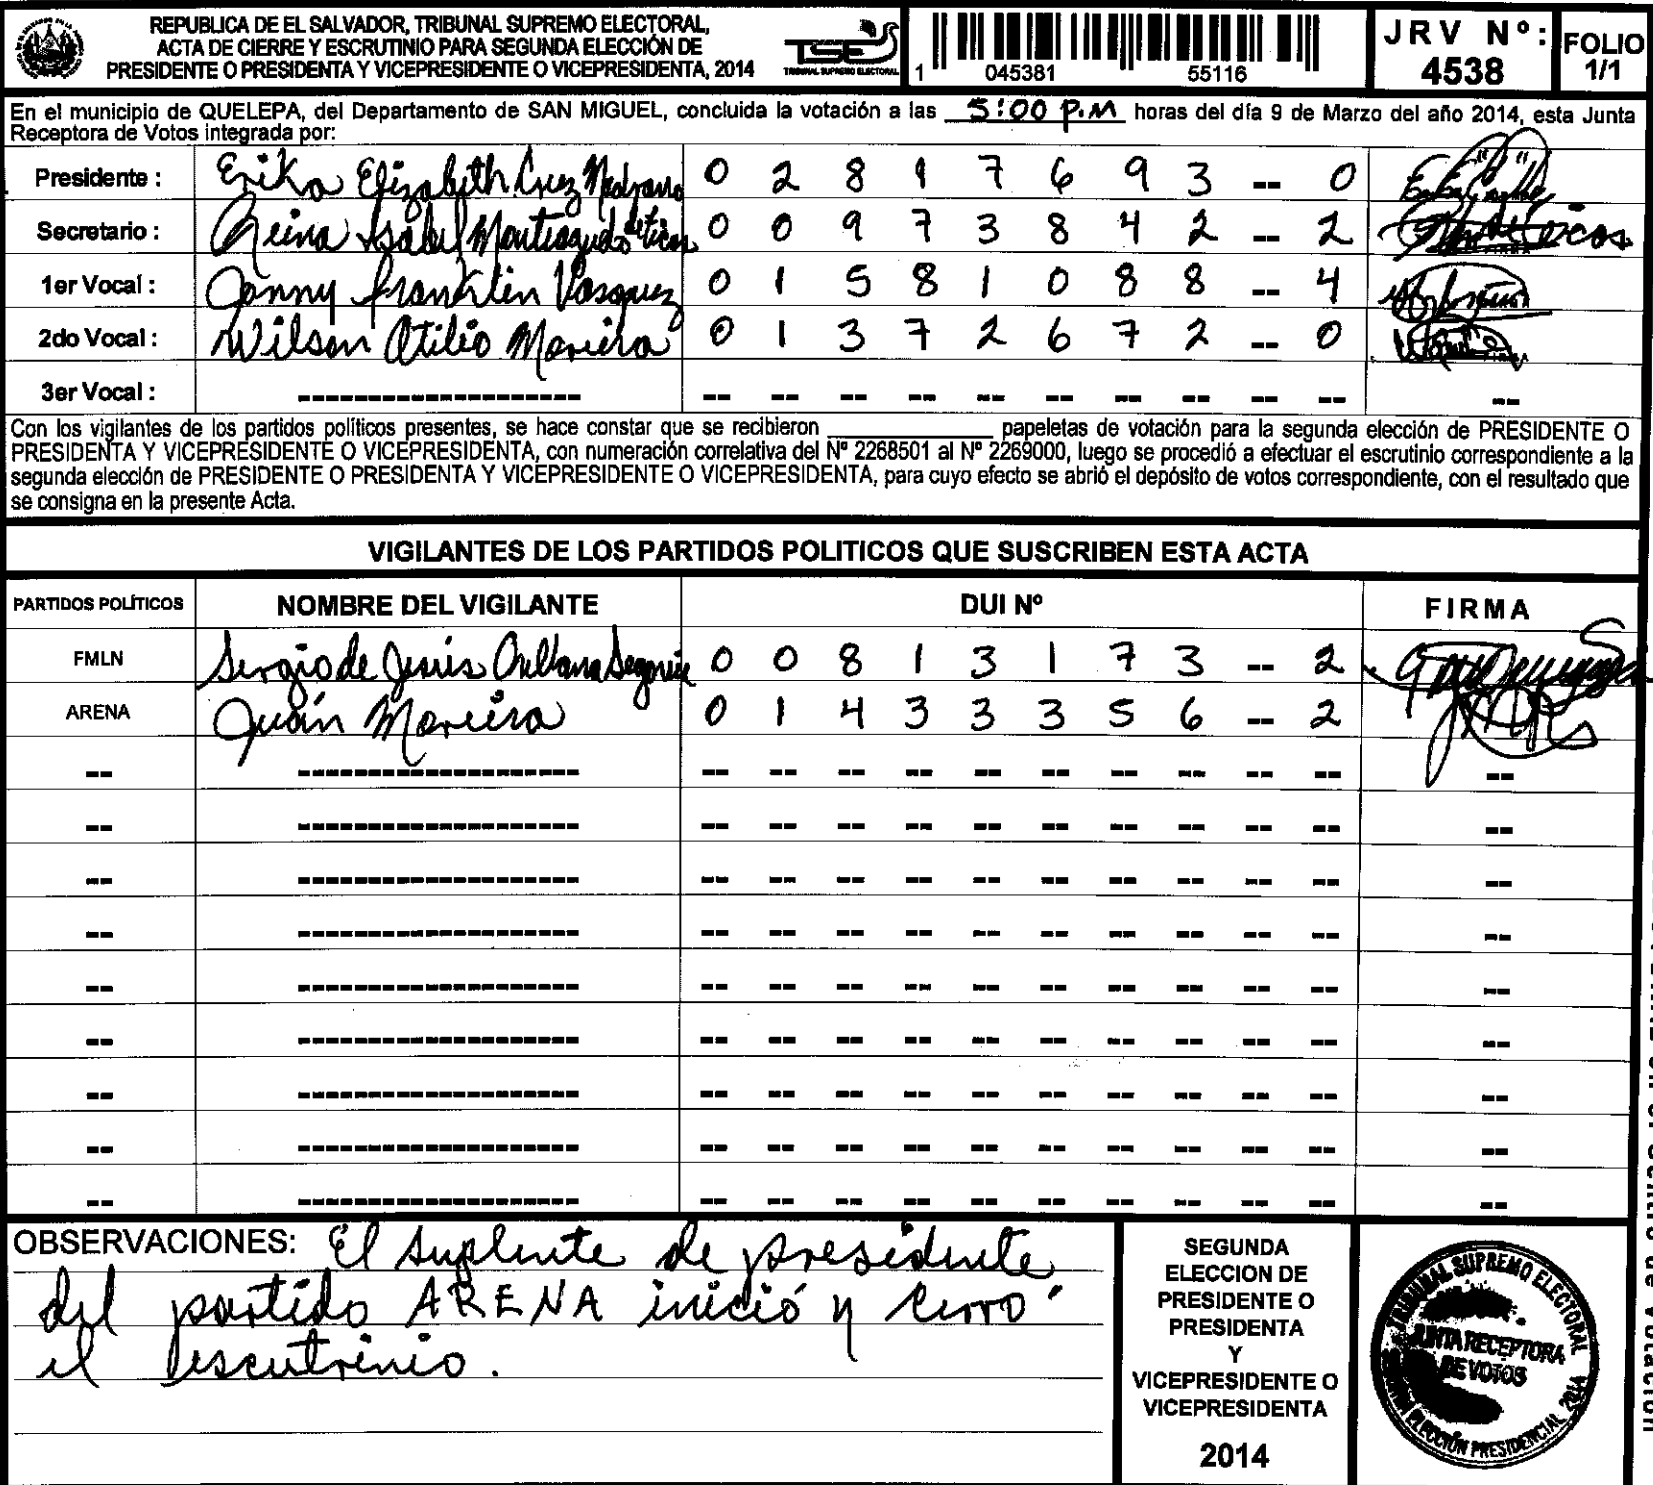 REPUBLICA DE EL SALVADOR, TRIBUNAL SUPREMO ELECTORAL,
ACTA DE CIERRE Y ESCRUTINIO PARA SEGUNDA ELECCIÓN DE
PRESIDENTE O PRESIDENTA Y VICEPRESIDENTE O VICEPRESIDENTA, 2014
TSE
TRIBUNAL SUPREMO ELECTORAL
1 045381 55116
JRV Nº:
4538
FOLIO
1/1
En el municipio de QUELEPA, del Departamento de SAN MIGUEL, concluida la votación a las 5:00 P.M horas del día 9 de Marzo del año 2014, esta Junta
Receptora de Votos integrada por:
Presidente : Erika Elizabeth Cruz Medrano 0 2 8 1 7 6 9 3 -- 0
Secretario : Reina Isabel Monteagudo 0 0 9 7 3 8 4 2 -- 2
1er Vocal : Jonny Franklin Vasquez 0 1 5 8 1 0 8 8 -- 4
2do Vocal : Wilson Atilio Moreira 0 1 3 7 2 6 7 2 -- 0
3er Vocal : -- -- -- -- -- -- -- -- -- -- --
Con los vigilantes de los partidos políticos presentes, se hace constar que se recibieron ____________ papeletas de votación para la segunda elección de PRESIDENTE O
PRESIDENTA Y VICEPRESIDENTE O VICEPRESIDENTA, con numeración correlativa del Nº 2268501 al Nº 2269000, luego se procedió a efectuar el escrutinio correspondiente a la
segunda elección de PRESIDENTE O PRESIDENTA Y VICEPRESIDENTE O VICEPRESIDENTA, para cuyo efecto se abrió el depósito de votos correspondiente, con el resultado que
se consigna en la presente Acta.
VIGILANTES DE LOS PARTIDOS POLITICOS QUE SUSCRIBEN ESTA ACTA
PARTIDOS POLÍTICOS NOMBRE DEL VIGILANTE DUI Nº FIRMA
FMLN Sergio de Jesús Orellana Segovia 0 0 8 1 3 1 7 3 -- 2
ARENA Juan Moreira 0 1 4 3 3 3 5 6 -- 2
OBSERVACIONES: El suplente de presidente
del partido ARENA inició y cerro
el escutrinio.
SEGUNDA
ELECCION DE
PRESIDENTE O
PRESIDENTA
Y
VICEPRESIDENTE O
VICEPRESIDENTA
2014
TRIBUNAL SUPREMO ELECTORAL
JUNTA RECEPTORA
DE VOTOS
ELECCIÓN PRESIDENCIAL 2014